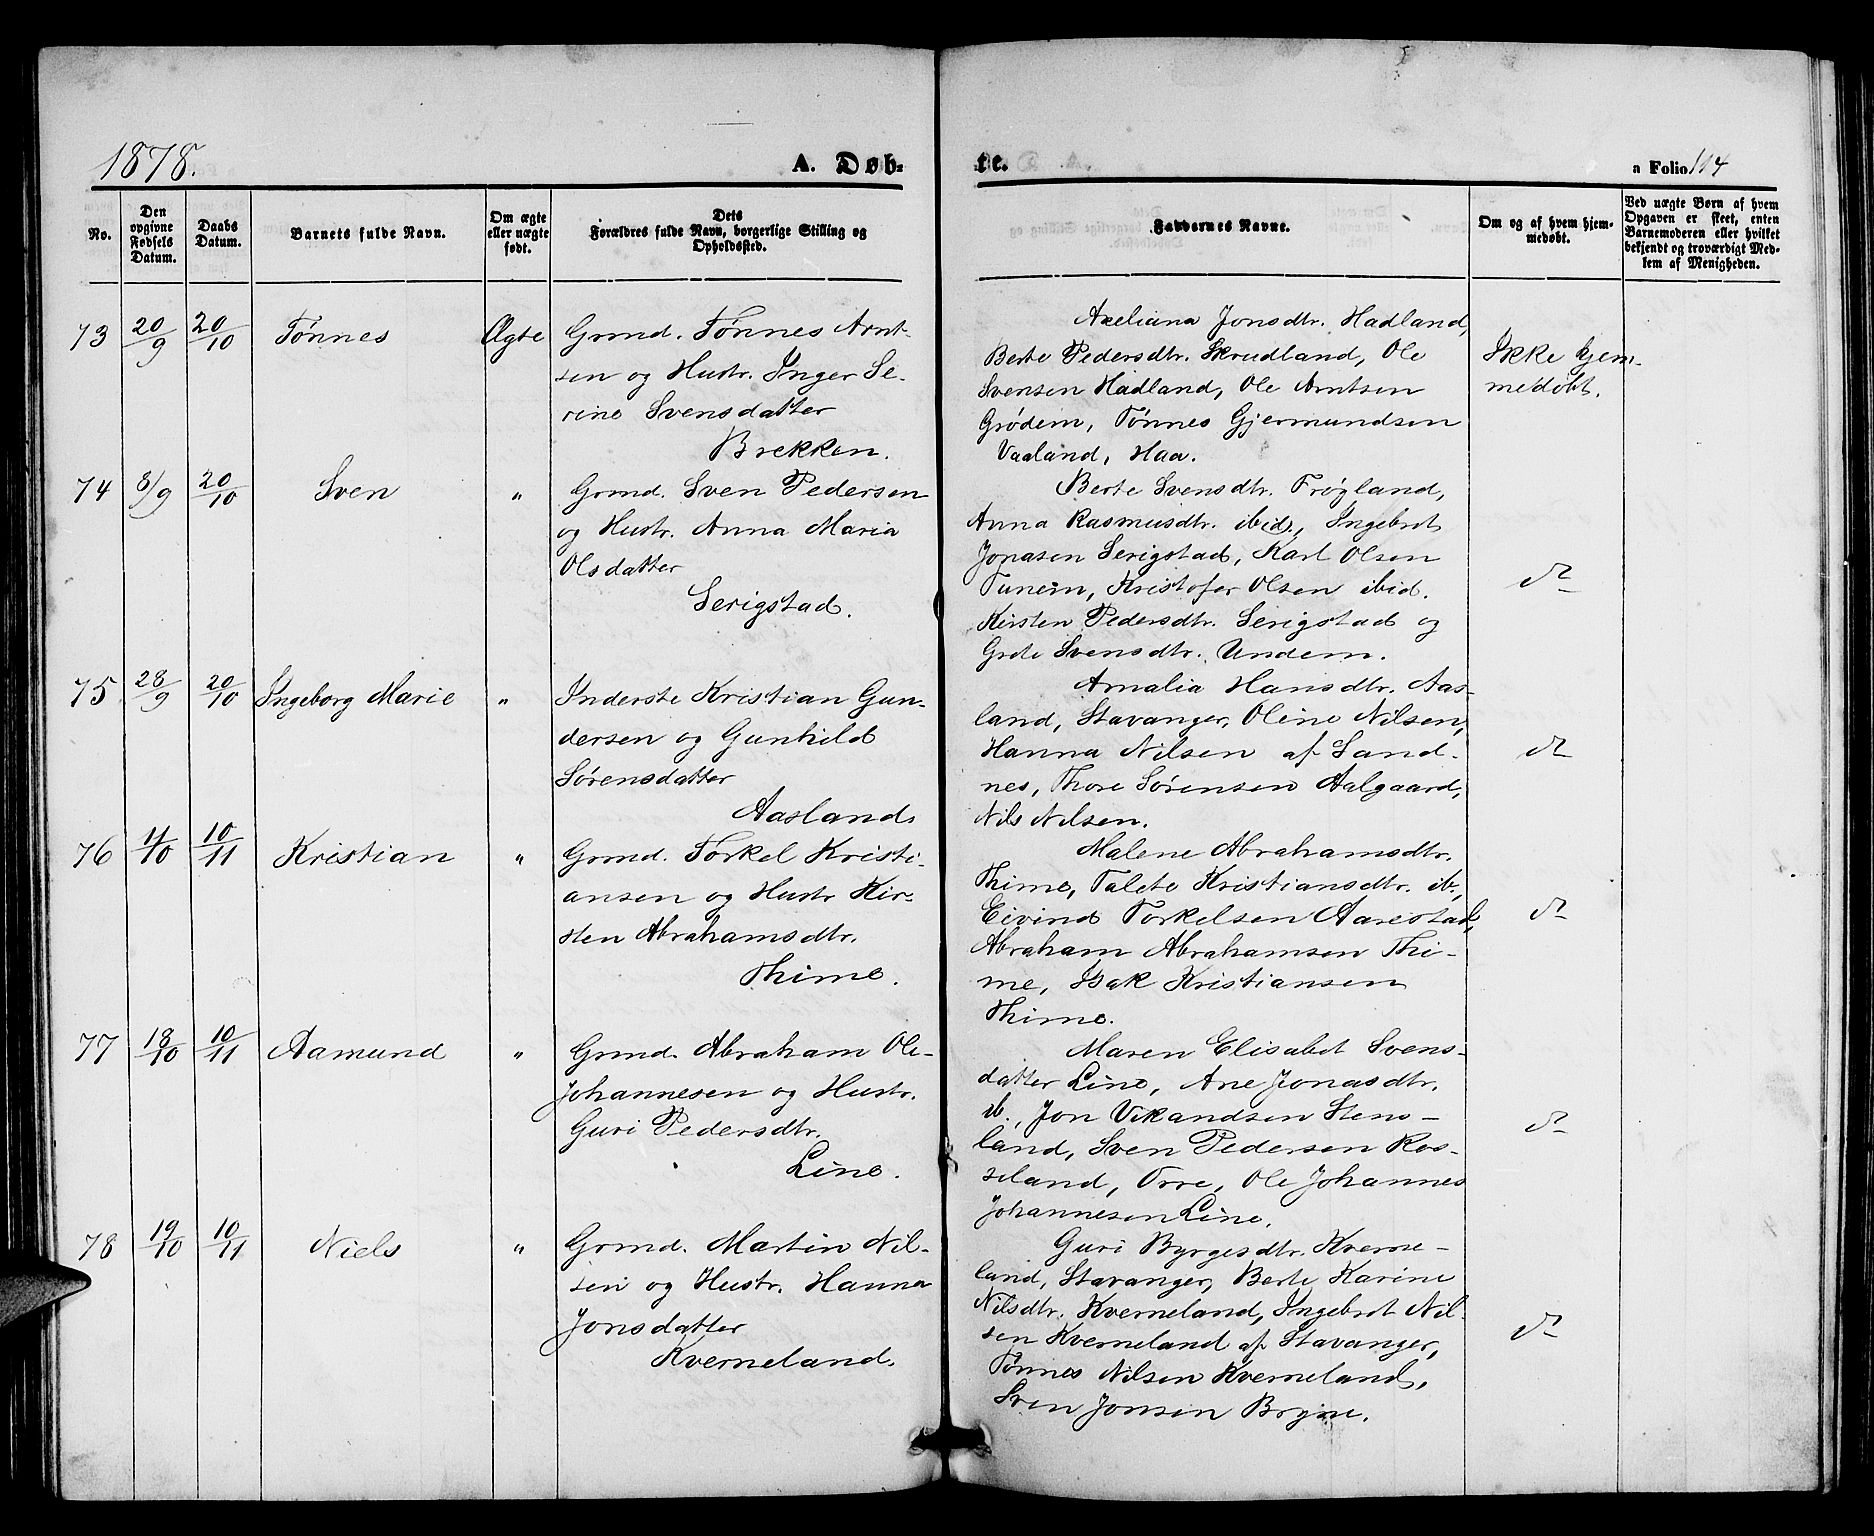 1878.
A. Døb-
te.
a Folio 114
No.
Den opgivne Fødsels Datum.
Daabs Datum.
Barnets fulde Navn.
Om ægte eller uægte født.
Dets Forældres fulde Navn, borgerlige Stilling og Opholdssted.
Faddernes Navne.
Om og af hvem hjemmedøbt.
Ved uægte Børn af hvem Opgaven er skeet, enten Barnemoderen eller hvilket bekjendt og troværdigt Medlem af Menigheden.
73 20/9 20/10 Tønnes Ægte
Grmd. Tønnes Arnt-
sen og Hustr. Inger Se-
rine Svensdatter
Brekken.
Axeliana Jonsdtr. Hadland,
Berte Pedersdtr. Skrudland, Ole
Svensen Hadland, Ole Arntsen
Grødem, Tønnes Gjermundsen
Vaaland, Haa.
Ikke hjem-
medøbt.
74 8/9 20/10 Sven "
Grmd. Sven Pedersen
og Hustr. Anna Maria
Olsdatter
Serigstad.
Berte Svensdtr. Frøyland,
Anna Rasmusdtr. ibid., Ingebret
Jonasen Serigstad, Karl Olsen
Tunem, Kristofer Olsen ibid.
Kirsten Pedersdtr. Serigstad og
Grete Svensdtr. Undem.
do
75 28/9 20/10 Ingeborg Marie "
Inderste Kristian Gun-
dersen og Gunhild
Sørensdatter
Aasland.
Amalia Hansdtr. Aas-
land, Stavanger, Oline Nilsen,
Hanna Nilsen af Sand-
nes, Thore Sørensen Aalgaard,
Nils Nilsen.
do
76 11/10 10/11 Kristian "
Grmd. Torkel Kristi-
ansen og Hustr Kir-
sten Abrahamsdtr.
Thime.
Malene Abrahamsdtr.
Thime, Talete Kristiansdtr. ib.,
Eivind Torkelsen Aarestad,
Abraham Abrahamsen Thi-
me, Isak Kristiansen
Thime.
do
77 18/10 10/11 Aamund "
Grmd. Abraham Ole-
Johannesen og Hustr.
Guri Pedersdtr.
Line.
Maren Elisabet Svens-
datter Line, Ane Jonasdtr.
ib., Jon Vikandsen Stens-
land, Sven Pedersen Ros-
seland, Orre, Ole Johannes
Johannesen Line.
do
78 19/10 10/11 Niels "
Grmd. Martin Nil-
sen og Hustr. Hanna
Jonsdatter
Kverneland.
Guri Byrgesdtr. Kverne-
land, Stavanger, Berte Karine
Nilsdtr. Kverneland, Ingebret Nil-
sen Kverneland af Stavanger,
Tønnes Nilsen Kverneland,
Sven Jonsen Bryne.
do